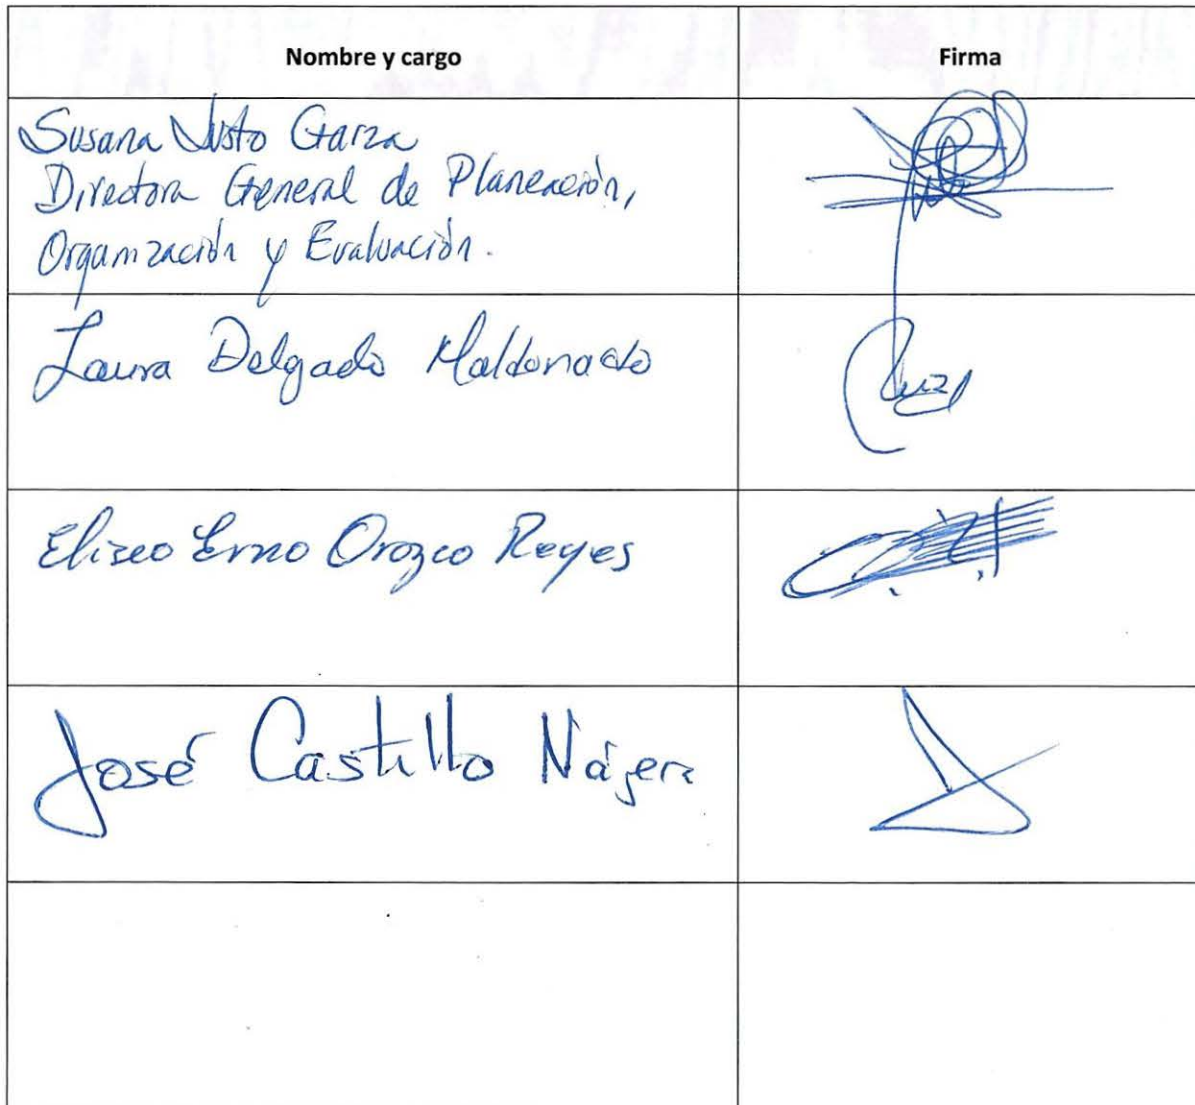 Nombre y cargo Firma
Susana Justo Garza
Directora General de Planeación,
Organización y Evaluación.
Laura Delgado Maldonado
Eliseo Erno Orozco Reyes
José Castillo Nájera